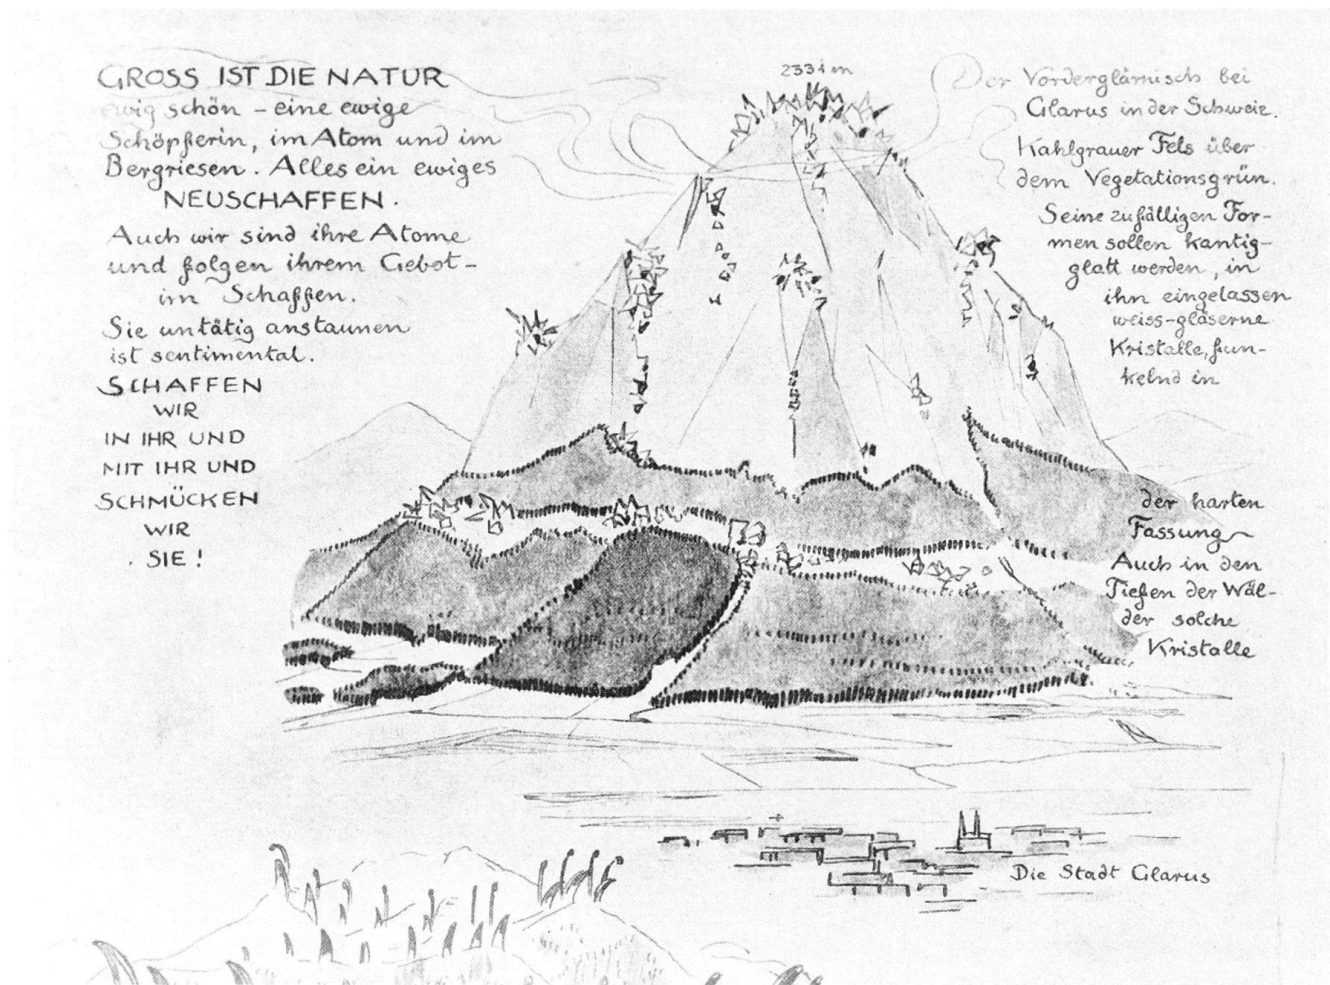 GROSS IST DIE NATUR
ewig schön – eine ewige
Schöpferin, im Atom und im
Bergriesen. Alles ein ewiges
NEUSCHAFFEN.
Auch wir sind ihre Atome
und folgen ihrem Gebot –
im Schaffen.
Sie untätig anstaunen
ist sentimental.
SCHAFFEN
WIR
IN IHR UND
MIT IHR UND
SCHMÜCKEN
WIR
SIE!
2331 m
Der Vorderglärnisch bei
Glarus in der Schweiz.
Kahlgrauer Fels über
dem Vegetationsgrün.
Seine zufälligen For-
men sollen kantig-
glatt werden, in
ihn eingelassen
weiss-gläserne
Kristalle, fun-
kelnd in
der harten
Fassung
Auch in den
Tiefen der Wäl-
der solche
Kristalle
Die Stadt Glarus